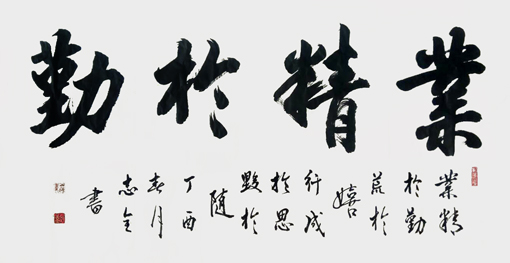 業精於勤
業精
於勤
荒於
嬉
行成
於思
毀於
随
丁酉
春月
志全
書